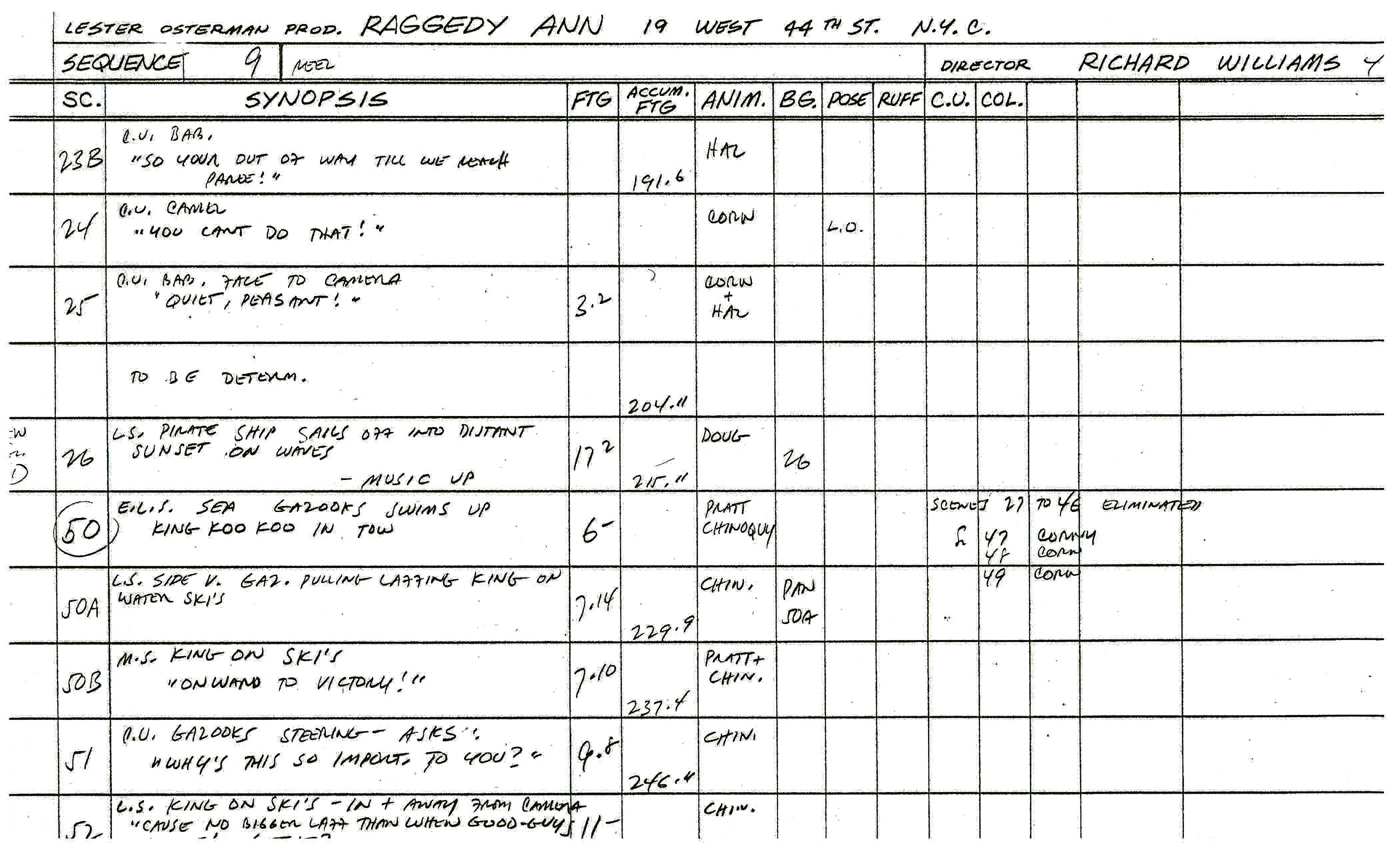 LESTER OSTERMAN PROD. RAGGEDY ANN 19 WEST 44TH ST. N.Y.C.
SEQUENCE 9 REEL DIRECTOR RICHARD WILLIAMS
SC. SYNOPSIS FTG ACCUM. FTG ANIM. BG. POSE RUFF C.U. COL.
23B C.U. BAB. HAL
"SO YOUR OUT OF WAY TILL WE REACH
PAREE!" 191.6
24 C.U. CAMEL CORN L.O.
"YOU CANT DO THAT!"
25 C.U. BAB. FACE TO CAMERA 3.2 CORN + HAL
"QUIET, PEASANT!"
TO BE DETERM.
204.11
26 L.S. PIRATE SHIP SAILS OFF INTO DISTANT 17 2 DOUG 26
SUNSET ON WAVES
- MUSIC UP 215.11
50 E.L.S. SEA GAZOOKS SWIMS UP 6- PRATT SCENES 27 TO 46 ELIMINATED
KING KOO KOO IN TOW CHINOQUY & 47 CORNY
48 CORN
49 CORN
50A L.S. SIDE V. GAZ. PULLING LAFFING KING ON 7.14 CHIN. PAN
WATER SKI'S 50A
229.9
50B M.S. KING ON SKI'S 7.10 PRATT +
"ONWARD TO VICTORY!" CHIN.
237.4
51 C.U. GAZOOKS STEERING - ASKS: 9.8 CHIN.
"WHY'S THIS SO IMPORT. TO YOU?"
246.11
52 L.S. KING ON SKI'S - IN + AWAY FROM CAMERA CHIN.
"CAUSE NO BIGGER LAFF THAN WHEN GOOD-GUYS 11-